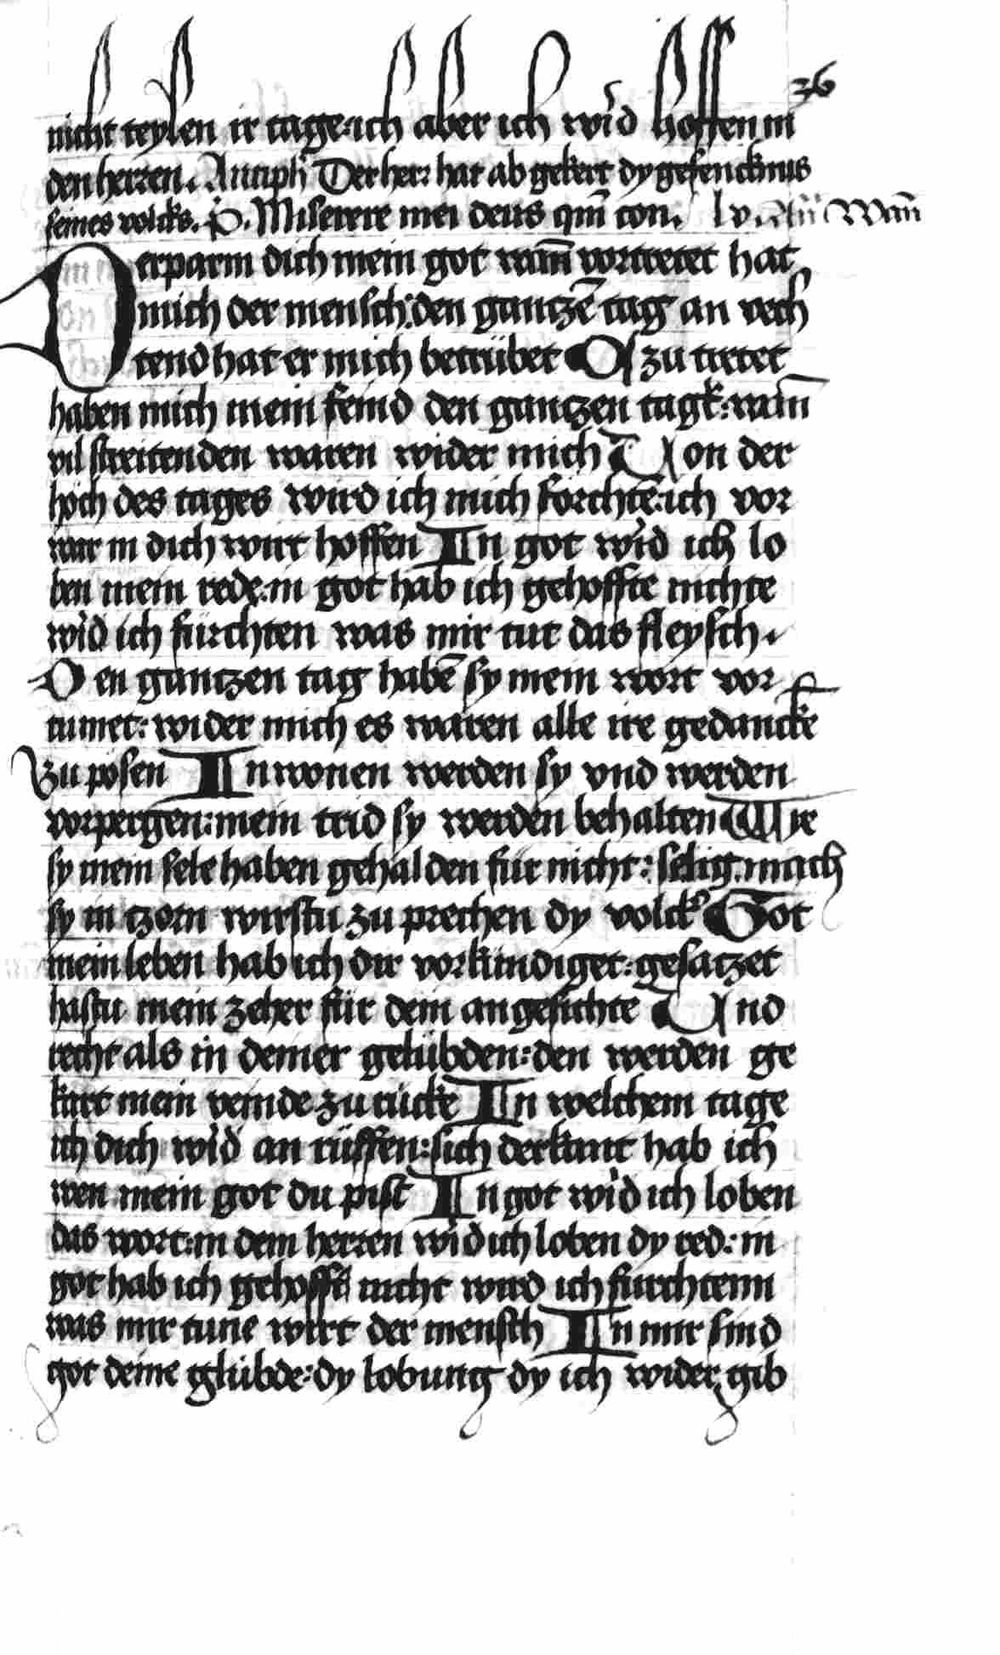 36
nicht teylen ir tage: ich aber ich wi̕d hoffen in
den herren. Antiph̕ Der herr hat ab gekert dy gefencknus
seines volcks. P̄. Miserere mei deus qm̄ con. lv. Wañ
Derparm dich mein got wañ vortretet hat
mich der mensch: den gantzē tag an vech
tend hat er mich betrübet Czu tretet
haben mich mein feind den gantzen tagk: wañ
vil streitenden waren wider mich Von der
hoch des tages wird ich mich forchtē: ich vor
war in dich wirt hoffen In got wi̕d ich lo
ben mein rede: in got hab ich gehoffte nichte
wi̕d ich fürchten was mir tut das fleysch.
Den gantzen tag habē sy mein wort vor
tumet: wider mich es waren alle ire gedancke
zu pösen In wonen werden sy vnd werden
vorpergen: mein trid sy werden behalten Wie
sy mein sele haben gehalden für nicht: selig mach
sy in tzorn wirstu zu prechen dy volck̕ Got
mein leben hab ich dir vorkündiget: gesatzet
hastu mein zeher für dein angesichte Und
recht als in deiner gelübden: den werden ge
kart mein veinde zu rücke In welchem tage
ich dich wi̕d an rüffen: sich derkant hab ich
wen mein got du pist In got wi̕d ich loben
das wort: in dem herren wi̕d ich loben dy red: in
got hab ich gehofft nicht wird ich fürchtenn
was mir tune wirt der mensch In mir sind
got deine glübde: dy lobung dy ich wider gib